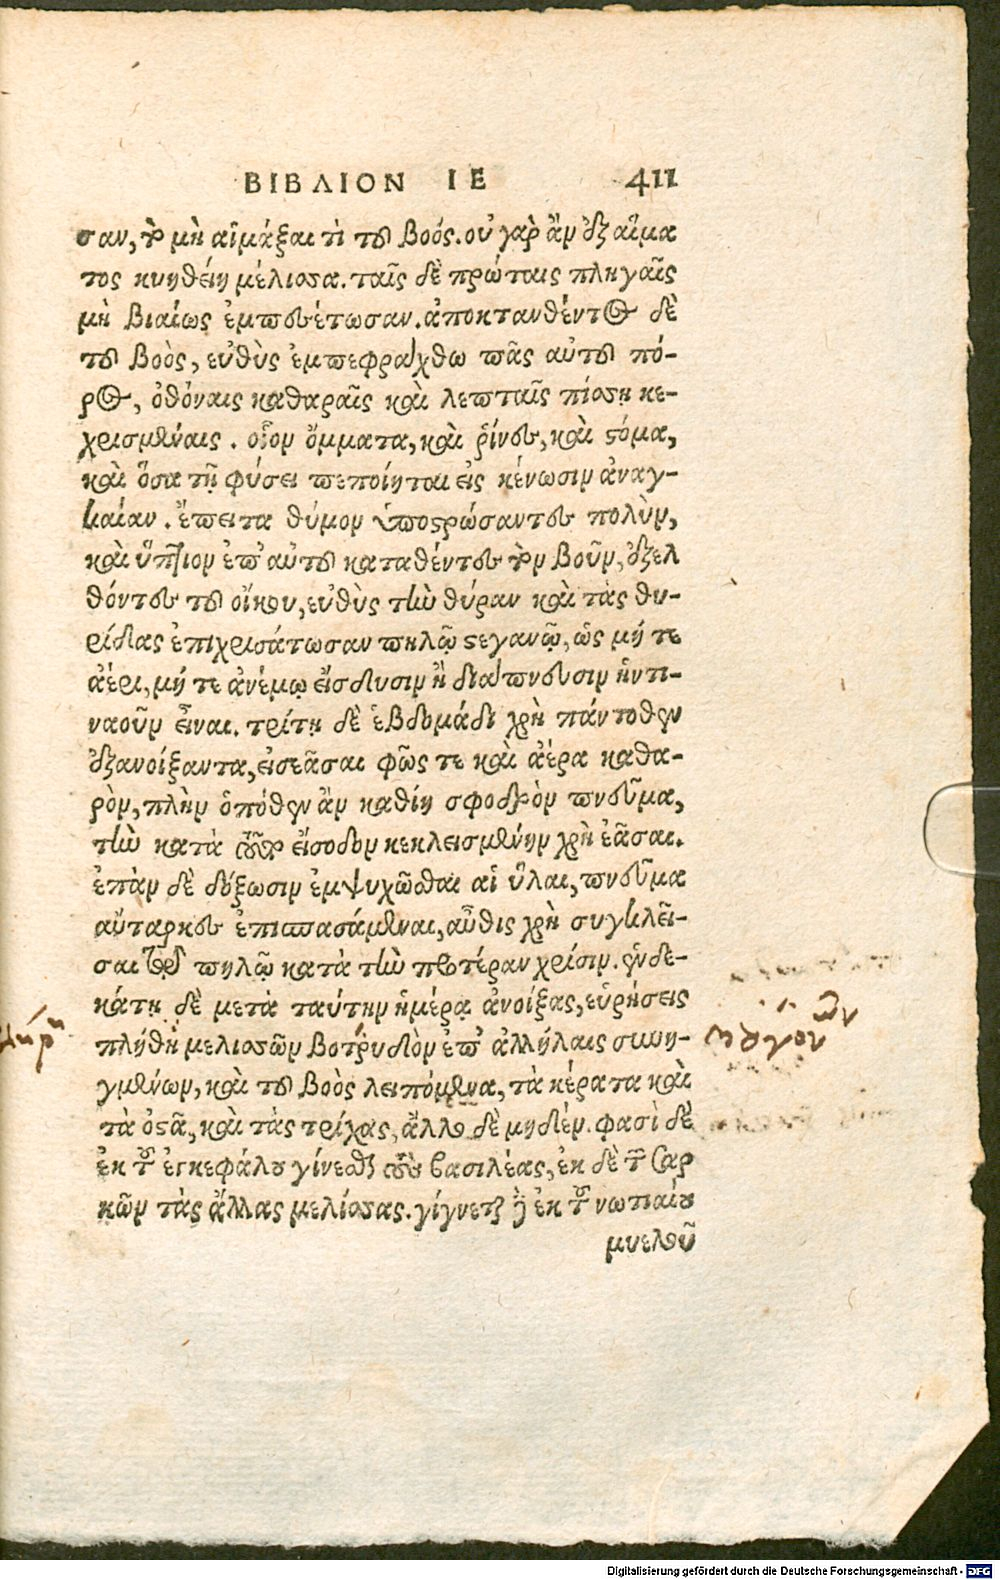 ΒΙΒΛΙΟΝ ΙΕ 411
σαν, τ μὴ αἱμάξαι τὶ τοῦ βοός. οὐ γὰρ ἂν ἐξ αἵμα
τος κυηθείη μέλισσα. ταῖς δὲ πρώταις πληγαῖς
μὴ βιαίως ἐμπιπέτωσαν. ἀποκτανθέντος δὲ
τοῦ βοὸς, εὐθὺς ἐμπεφράχθω πᾶς αὐτοῦ πό-
ρος, ὀθόναις καθαραῖς καὶ λεπταῖς πίσσῃ κε-
χρισμέναις. οἷον ὄμματα, καὶ ῥίνες, καὶ στόμα,
καὶ ὅσα τῇ φύσει πεποίηται εἰς κένωσιν ἀναγ-
καίαν. ἔπειτα θύμον ὑποστρώσαντες πολὺν,
καὶ ὕπτιον ἐπ' αὐτοῦ καταθέντες τὸν βοῦν, ἐξελ
θόντες τοῦ οἴκου, εὐθὺς τὴν θύραν καὶ τὰς θυ-
ρίδας ἐπιχρισάτωσαν πηλῷ στεγανῷ, ὡς μή τε
ἀέρι, μή τε ἀνέμῳ εἴσδυσιν ἢ διάπνευσιν ἥντι-
ναοῦν εἶναι. τρίτῃ δὲ ἑβδομάδι χρὴ πάντοθεν
ἐξανοίξαντα, εἰσεᾶσαι φῶς τε καὶ ἀέρα καθα-
ρὸν, πλὴν ὁπόθεν ἂν καθίῃ σφοδρὸν πνεῦμα,
τὴν κατὰ εἴσοδον κεκλεισμένην χρὴ ἐᾶσαι.
ἐπὰν δὲ δόξωσιν ἐμψυχῶσθαι αἱ ὗλαι, πνεῦμα
αὔταρκες ἐπισπασάμεναι, αὖθις χρὴ συγκλεῖ-
σαι πηλῷ κατὰ τὴν προτέραν χρίσιν. ἑνδε-
κάτῃ δὲ μετὰ ταύτην ἡμέρᾳ ἀνοίξας, εὑρήσεις
πλήθη μελισσῶν βοτρυδὸν ἐπ' ἀλλήλαις συνη-
γμένων, καὶ τοῦ βοὸς λειπόμενα, τὰ κέρατα καὶ
τὰ ὀστᾶ, καὶ τὰς τρίχας, ἄλλο δὲ μηδέν. φασὶ δὲ
ἐκ τοῦ ἐγκεφάλου γίνεσθαι τοὺς βασιλέας, ἐκ δὲ τῶν σαρ
κῶν τὰς ἄλλας μελίσσας. γίγνεται δὲ ἐκ τοῦ νωτιαίου
μυελοῦ
Digitalisierung gefördert durch die Deutsche Forschungsgemeinschaft - DFG